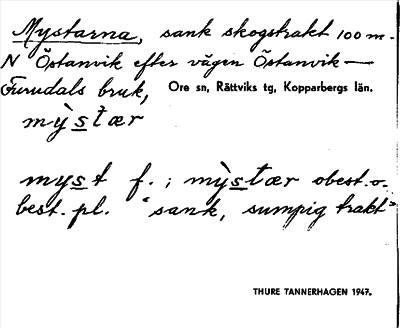 Mystarna, sank skogstrakt 100 m.
N Östanvik efter vägen Östanvik—
Furudals bruk, Ore sn, Rättviks tg, Kopparbergs län.
mỳstær
myst f. ; mỳstær obest. o.
best. pl. "sank, sumpig trakt"
THURE TANNERHAGEN 1947.